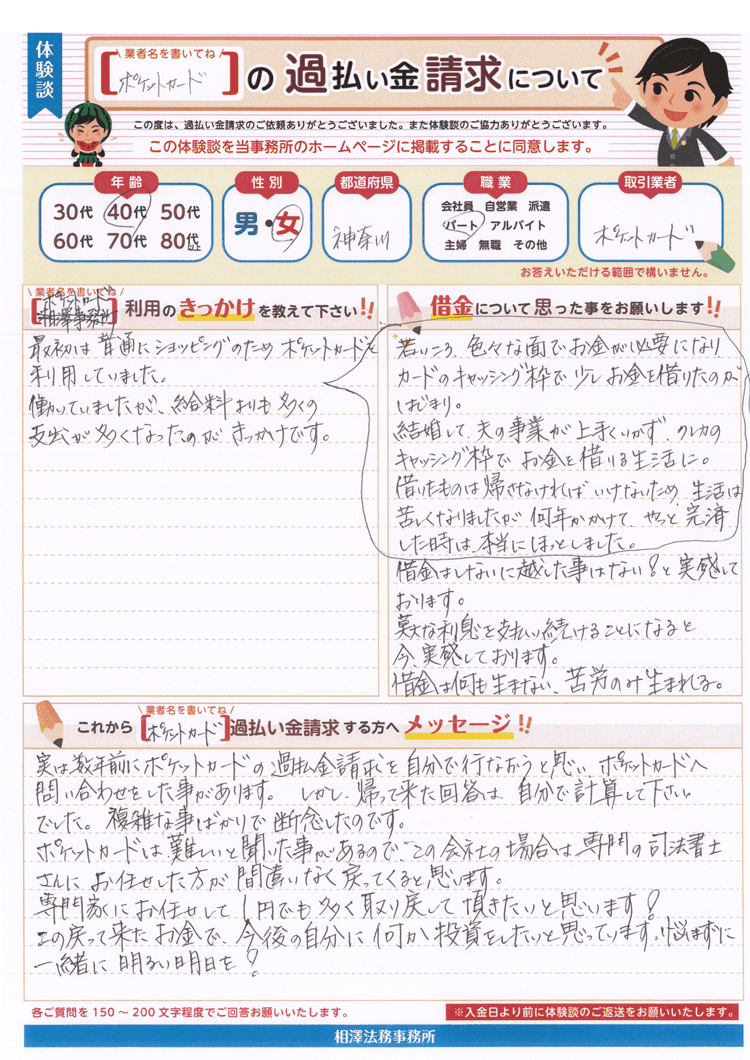 体験談
業者名を書いてね
[ポケットカード]の過払い金請求について
この度は、過払い金請求のご依頼ありがとうございました。また体験談のご協力ありがとうございます。
この体験談を当事務所のホームページに掲載することに同意します。
年齢
30代 40代 50代
60代 70代 80代以上
性別
男・女
都道府県
神奈川
職業
会社員 自営業 派遣
パート アルバイト
主婦 無職 その他
取引業者
ポケットカード
お答えいただける範囲で構いません。
業者名を書いてね
[ポケットカード
相澤事務所]利用のきっかけを教えて下さい!!
最初は普通にショッピングのためポケットカードを
利用していました。
働いていましたが、給料よりも多くの
支出が多くなったのがきっかけです。
借金について思った事をお願いします!!
若いころ、色々な面でお金が必要になり
カードのキャッシング枠で少しお金を借りたのが
はじまり。
結婚して、夫の事業が上手くいかず、クレカの
キャッシング枠でお金を借りる生活に。
借りたものは帰さなければいけないため、生活は
苦しくなりましたが何年かかけて、やっと完済
した時は、本当にほっとしました。
借金はしないに越した事はない!と実感して
おります。
莫大な利息を支払い続けることになると
今、実感しております。
借金は何も生まない、苦労のみ生まれる。
業者名を書いてね
これから[ポケットカード]過払い金請求する方へメッセージ!!
実は数年前にポケットカードの過払金請求を自分で行なおうと思い、ポケットカードへ
問い合わせをした事があります。しかし、帰って来た回答は、自分で計算して下さい
でした。複雑な事ばかりで断念したのです。
ポケットカードは難しいと聞いた事があるので、この会社の場合は専門の司法書士
さんにお任せした方が間違いなく戻ってくると思います。
専門家にお任せして1円でも多く取り戻して頂きたいと思います!
この戻って来たお金で、今後の自分に何か投資をしたいと思っています。悩まずに
一緒に明るい明日を!
各ご質問を150〜200文字程度でご回答お願いいたします。
※入金日より前に体験談のご返送をお願いいたします。
相澤法務事務所